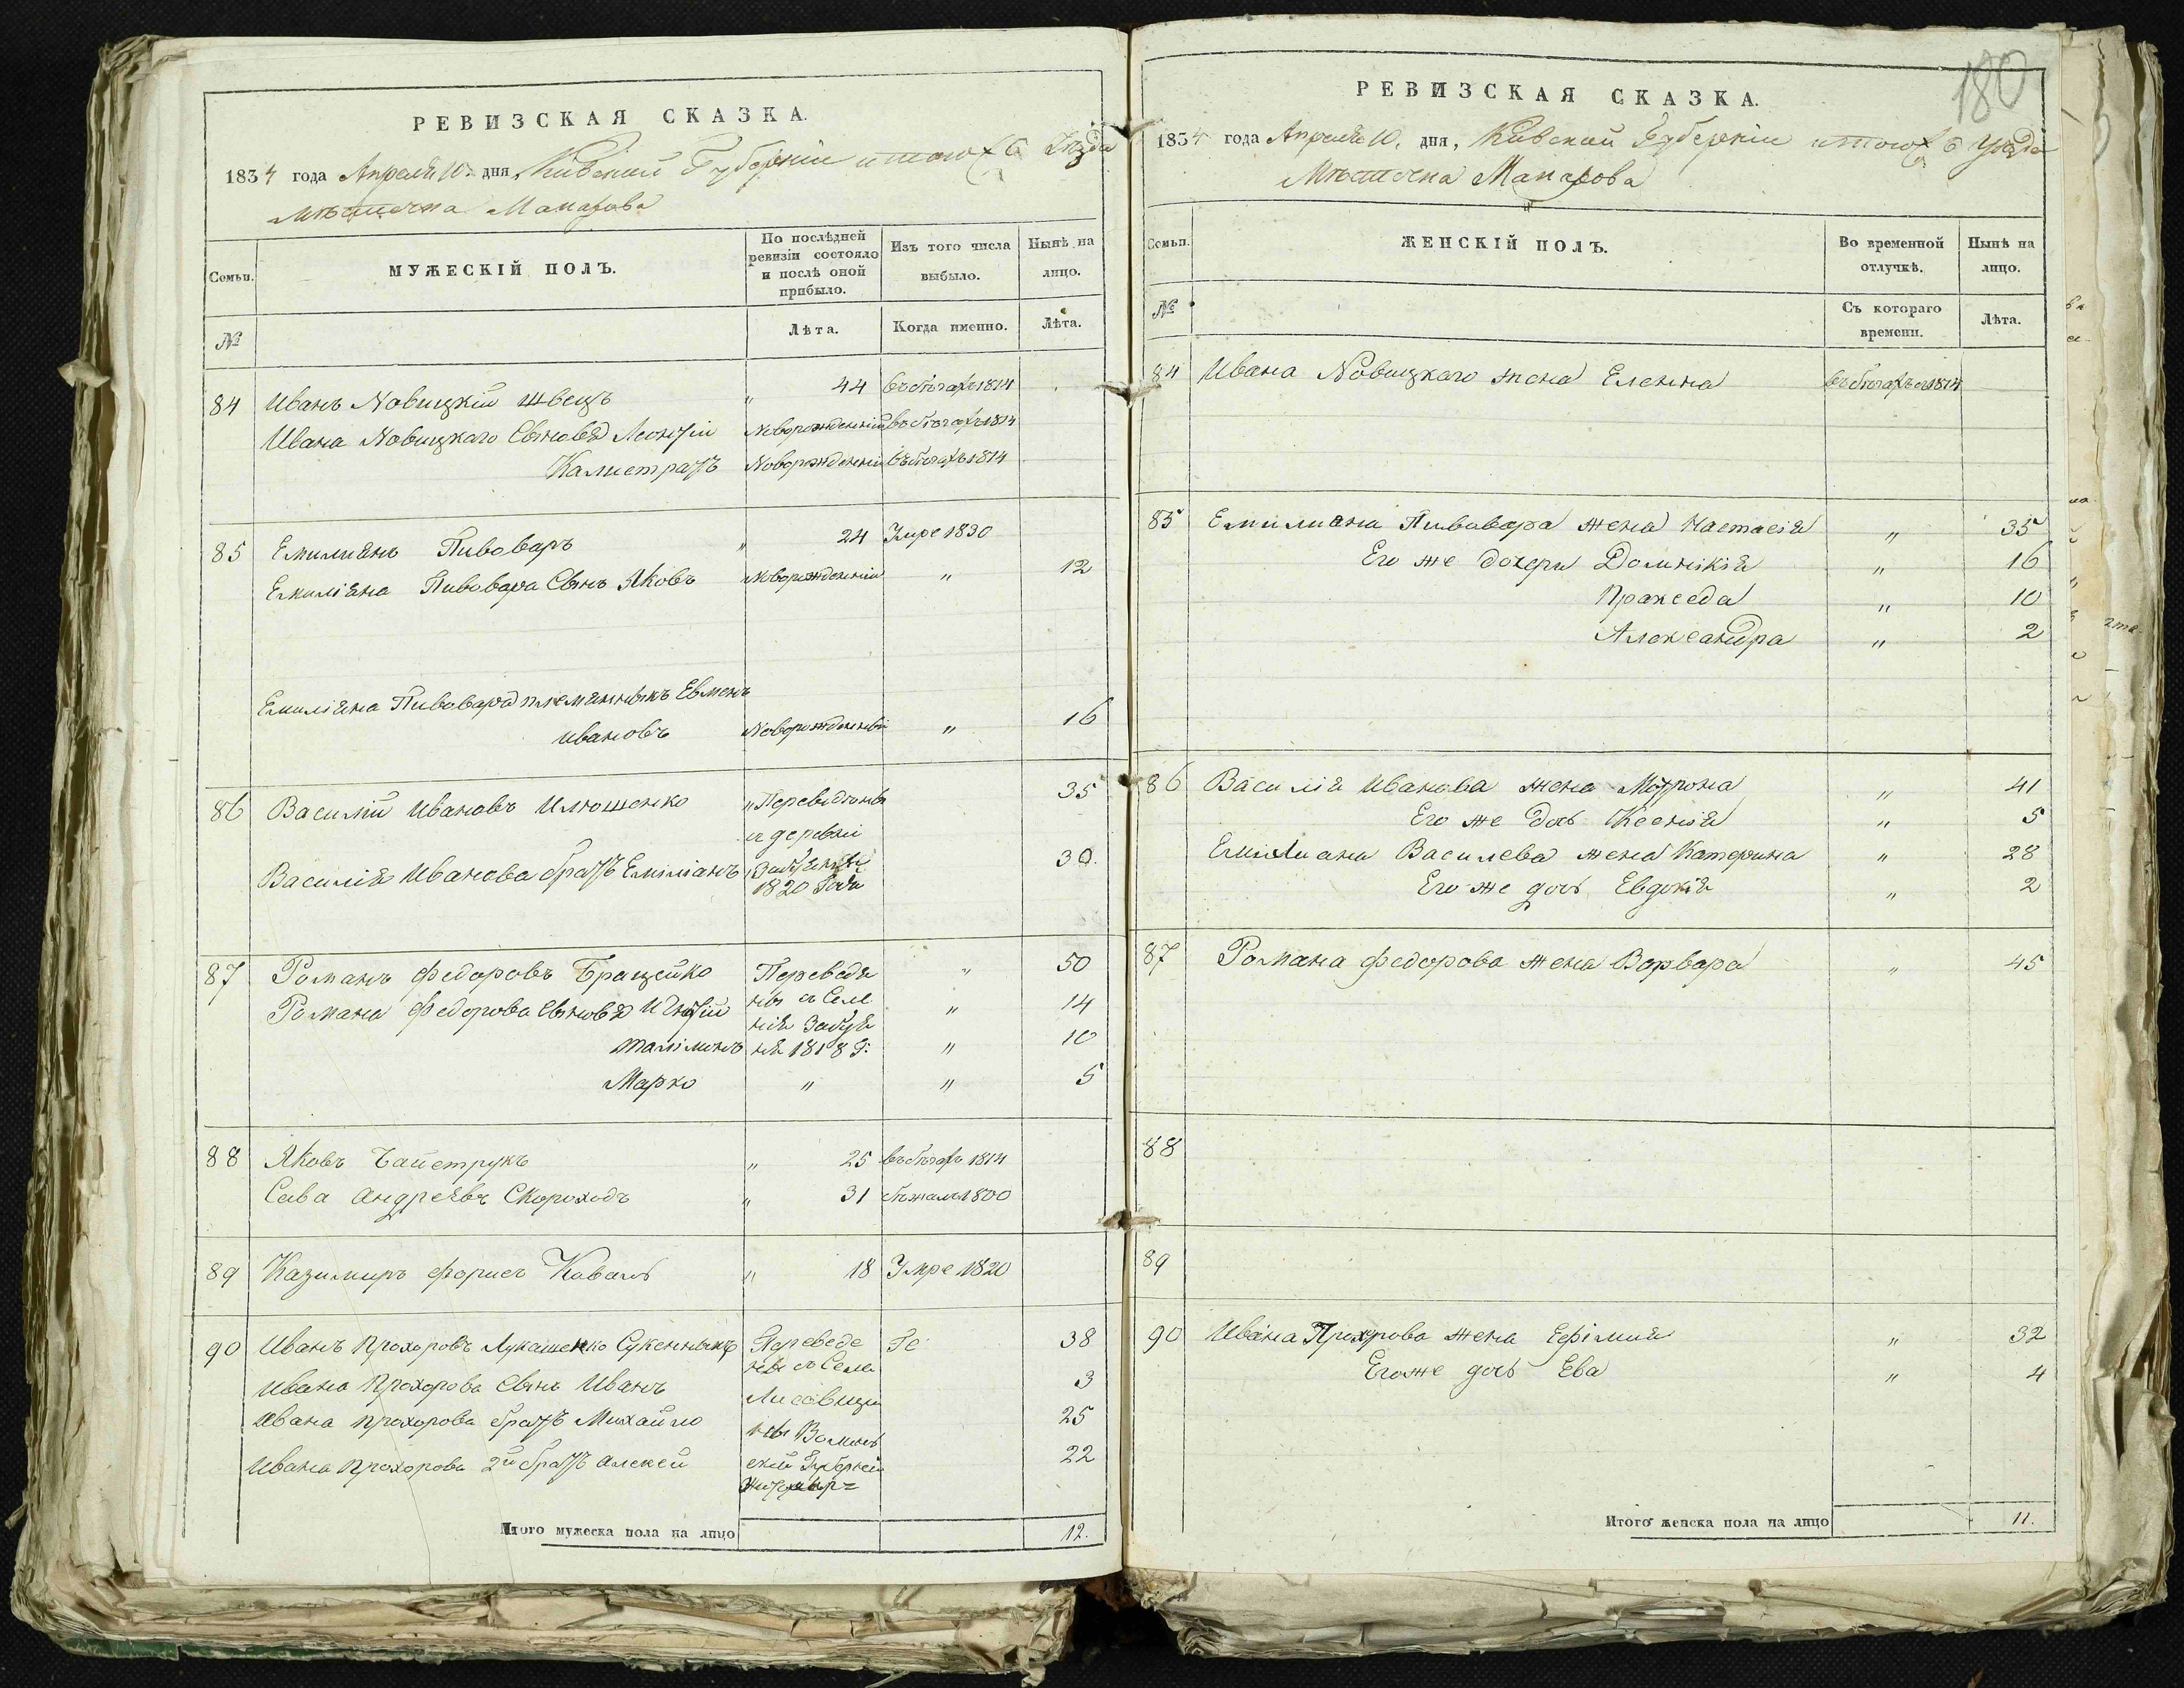 РЕВИЗСКАЯ СКАЗКА.
1834 года Апреля 10. дня, Киевской Губернии Уезда
Мѣстечка Макарова
Семьи. МУЖЕСКІЙ ПОЛЪ. По послѣдней ревизіи состояло и послѣ оной прибыло. Изъ того числа выбыло. Нынѣ на лицо.
№ Лѣта. Когда именно. Лѣта.
84 Иванъ Новицкій Швецъ " 44 въ бѣгахъ 1814
Ивана Новицкаго Сыновя Леонтіи Новорожденнiй въ бѣгахъ 1814
Калистратъ Новорожденнiй въ бѣгахъ 1814
85 Емилиянъ Пивоваръ " 24 Умре 1830
Емиліяна Пивовара Сынъ Яковъ Новорожденнiй " 12
Емиліяна Пивовара племянныкъ Евменъ
Ивановъ Новорожденнiй " 16
86 Василий Ивановъ Илюшенко " Переведены 35
съ деревни
Василія Иванова братъ Емиліанъ 30.
1820 Года
87 Романъ Федоровъ Бращейко Переведе " 50
Романа Федорова Сыновя Игнатій ны съ Селе " 14
нія Забуя " 10
ня 1818 Г:
Марко " " 5
88 Яковъ Байструкъ " 25 въ бѣгахъ 1814
Сава Андреявъ Скороходъ " 31 бѣжалъ 1800
89 Казимиръ Форисъ Коваль " 18 Умре 1820
90 Иванъ Прохоровъ Лукашенко Сукенныкъ Переведе 38
Ивана Прохорова Сынъ Иванъ ны съ Села 3
Ивана Прохорова братъ Михайло Лисовщи 25
Ивана Прохорова 2й братъ Алексей ны Волынь 22
ской Губерніи
Житомир=
Итого мужеска пола на лицо 12.
180
РЕВИЗСКАЯ СКАЗКА.
1834 года Апреля 10. дня, Киевской Губернии Уезда
Мѣстечка Макарова
Семьи. ЖЕНСКІЙ ПОЛЪ. Во временной отлучкѣ. Нынѣ на лицо.
№ Съ котораго времени. Лѣта.
84 Ивана Новицкаго жена Еленна въ бѣгахъ съ 1814
85 Емилиана Пивовара жена Настасія " 35
Его же дочери Домникія " 16
Пракседа " 10
Александра " 2
86 Василія Иванова жена Мотрона " 41
Его же дочь Ксенія " 5
Емилиана Василева жена Катерина " 28
Его же дочь Евдокія " 2
87 Романа Федорова жена Варвара " 45
88
89
90 Ивана Прохорова жена Ефімия " 32
Егоже дочь Ева " 4
Итого женска пола на лицо 11.